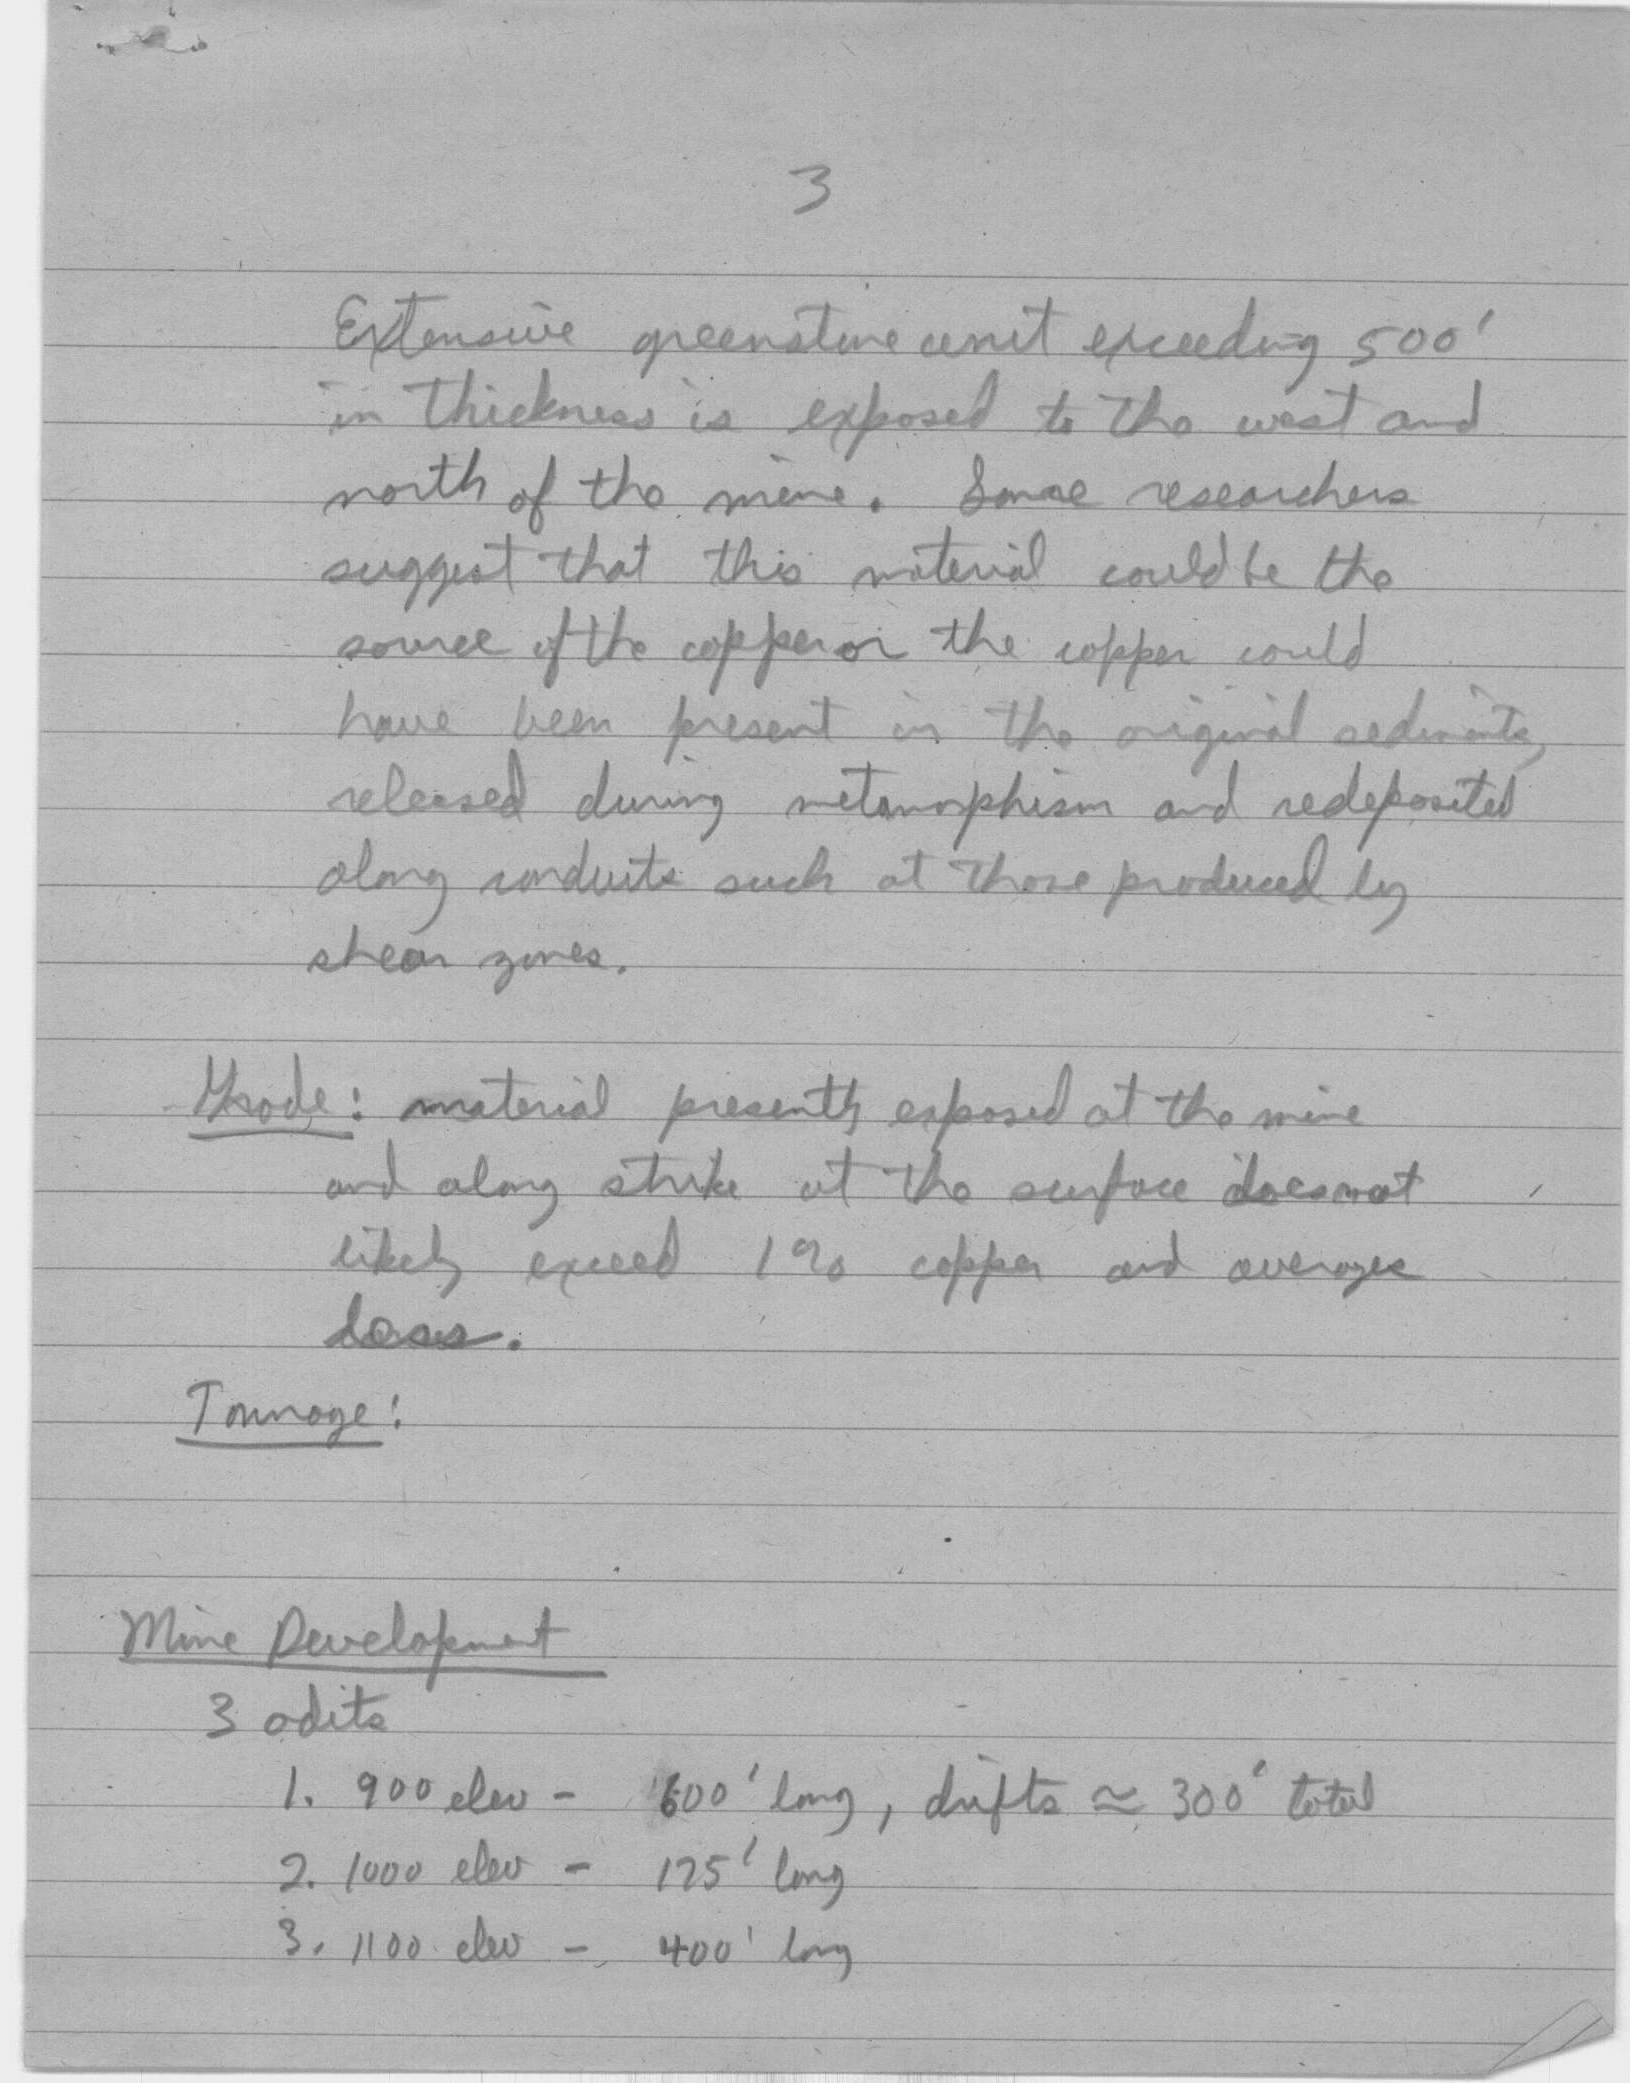 3
Extensive greenstone unit exceeding 500'
in thickness is exposed to the west and
north of the mine. Some researchers
suggest that this material could be the
source of the copper or the copper could
have been present in the original sediments,
released during metamorphism and redeposited
along conduits such at those produced by
shear zones.
Grade: material presently exposed at the mine
and along strike at the surface does not
likely exceed 1% copper and averages
less.
Tonnage:
Mine Development
3 adits
1. 900 elev - 600' long, drifts ≃ 300' total
2. 1000 elev - 125' long
3. 1100 elev - 400' long